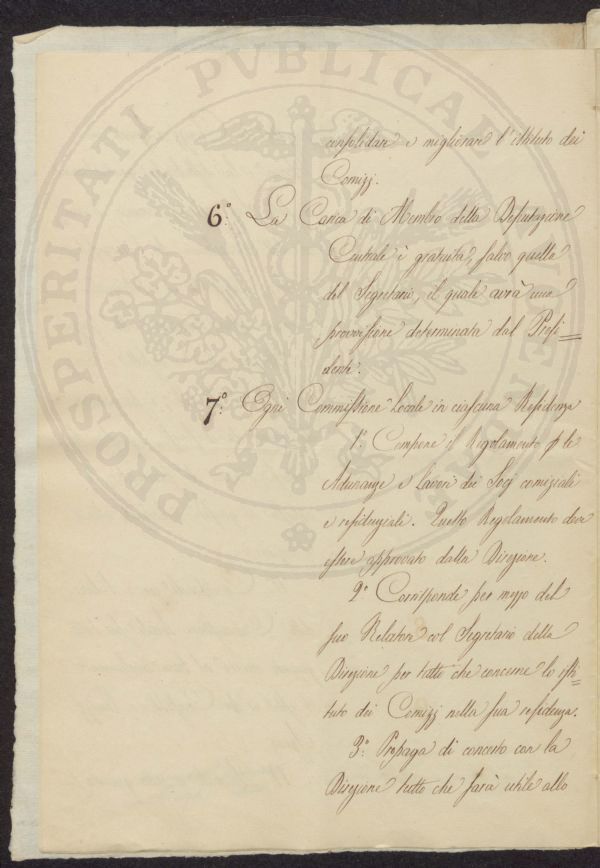 PROSPERITATI PUBLICAE AUGENDAE
consolidare e migliorare l'istituto dei
Comizj.
6.° La Carica di Membro della Deputazione
Centrale è gratuita, salvo quella
del Segretario, il quale avrà una
provvisione determinata dal Presi=
dente.
7.° Ogni Commissione Locale in ciascuna Residenza
1.° Compone il Regolamento p le
Adunanze e lavori dei Socj comiziali
e residenziali. Questo Regolamento deve
essere approvato dalla Direzione.
2.° Corrisponde per mezzo del
suo Relatore col Segretario della
Direzione per tutto che concerne lo isti=
tuto dei Comizj nella sua residenza.
3.° Propaga di concerto con la
Direzione tutto che sarà utile allo